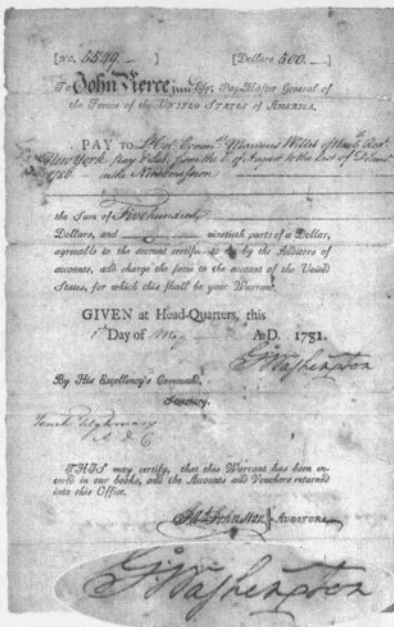 [No. 5549 ] [Dollars 500. ]
To John Pierce junr Esq; Pay-Master General of
the Forces of the UNITED STATES OF AMERICA.
PAY TO Lt Col Marinus Willet of
New York pay & sub. from the 1st of August to the last of
1780
the Sum of Five hundred
Dollars, and ninetieth parts of a Dollar,
agreeable to the account by the Auditors of
accounts, and charge the same to the account of the United
States, for which this shall be your Warrant.
GIVEN at Head-Quarters, this
1st Day of May A.D. 1781.
G:Washington
By His Excellency's Command,
Secretary.
Tench Tilghman
A D C
THIS may certify, that this Warrant has been en-
ered in our books, and the Accounts and Vouchers returned
into this Office.
Johnston AUDITORS
G:Washington